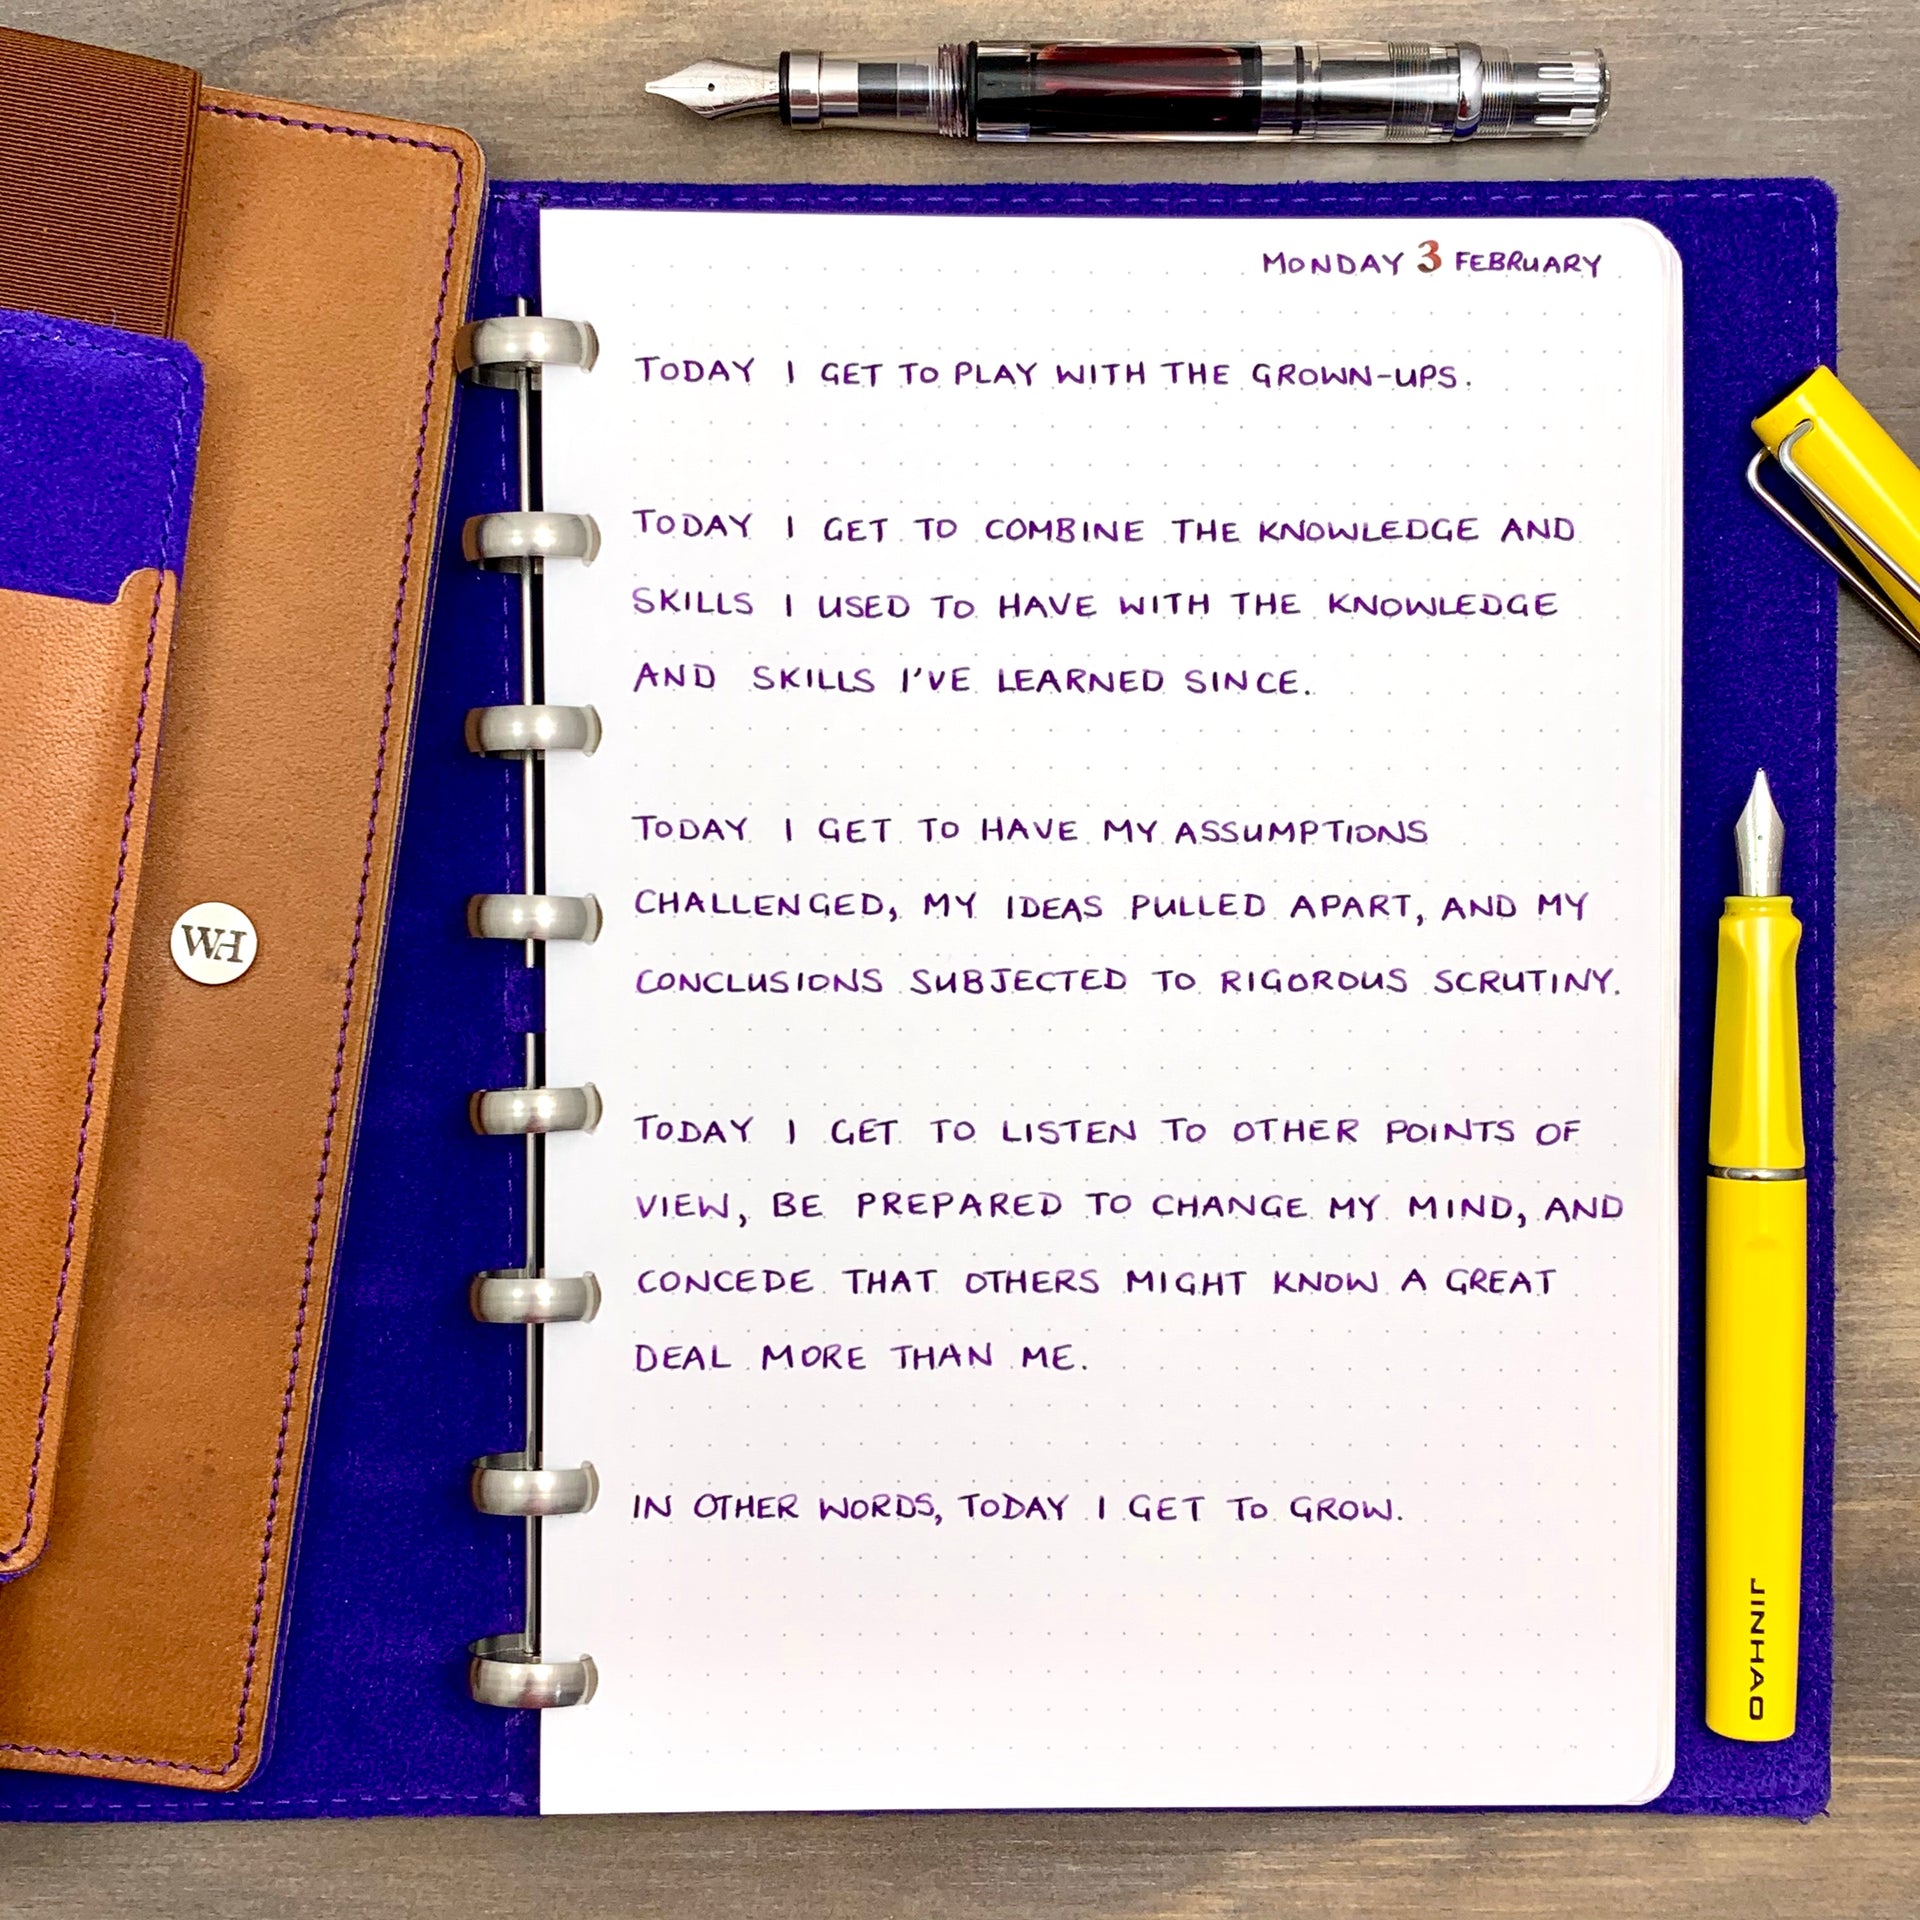 MONDAY 3 FEBRUARY
TODAY I GET TO PLAY WITH THE GROWN-UPS.
TODAY I GET TO COMBINE THE KNOWLEDGE AND
SKILLS I USED TO HAVE WITH THE KNOWLEDGE
AND SKILLS I'VE LEARNED SINCE.
TODAY I GET TO HAVE MY ASSUMPTIONS
CHALLENGED, MY IDEAS PULLED APART, AND MY
CONCLUSIONS SUBJECTED TO RIGOROUS SCRUTINY.
TODAY I GET TO LISTEN TO OTHER POINTS OF
VIEW, BE PREPARED TO CHANGE MY MIND, AND
CONCEDE THAT OTHERS MIGHT KNOW A GREAT
DEAL MORE THAN ME.
IN OTHER WORDS, TODAY I GET TO GROW.
WH
JINHAO